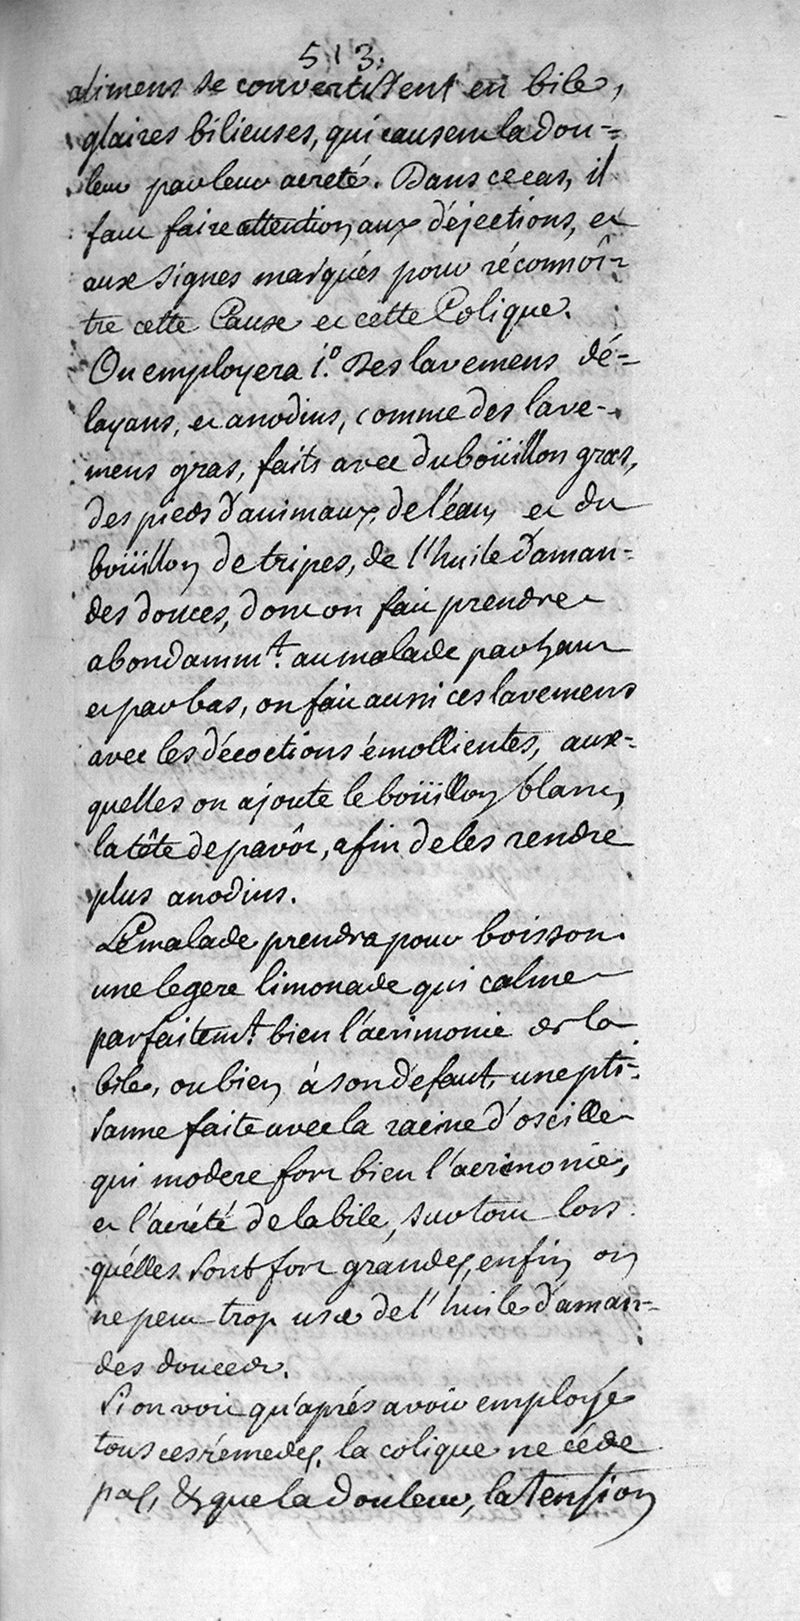 513.
alimens se convertissent en bile,
glaires bilieuses, qui causent la dou=
leur par leur acreté. Dans ce cas, il
faut faire attention aux déjections, et
aux signes marqués pour réconnoî-
tre cette Cause et cette Colique.
On employera 1.º Des lavemens dé=
layans, et anodins, comme des lave-
mens gras, faits avec du boüillon gras,
des pieds d'animaux, de l'eau, et du
boüillon de tripes, de l'huile d'aman=
des douces, dont on fait prendre
abondamm.t au malade par haut
et par bas, on fait aussi ces lavemens
avec les décoctions émollientes, aux=
quelles on ajoute le boüillon blanc,
la tête de pavôt, afin de les rendre
plus anodins.
Le malade prendra pour boisson
une legere limonade qui calme
parfaitem.t bien l'acrimonie de la
bile, ou bien à son défaut, une pti=
sanne faite avec la racine d'oseille
qui modere fort bien l'acrimonie,
et l'acreté de la bile, surtout lors
qu'elles sont fort grandes, enfin on
ne peut trop user de l'huile d'aman=
des douces.
Si on voit qu'aprés avoir employé
tous ces rémedes, la colique ne céde
pas, & que la douleur, la tension